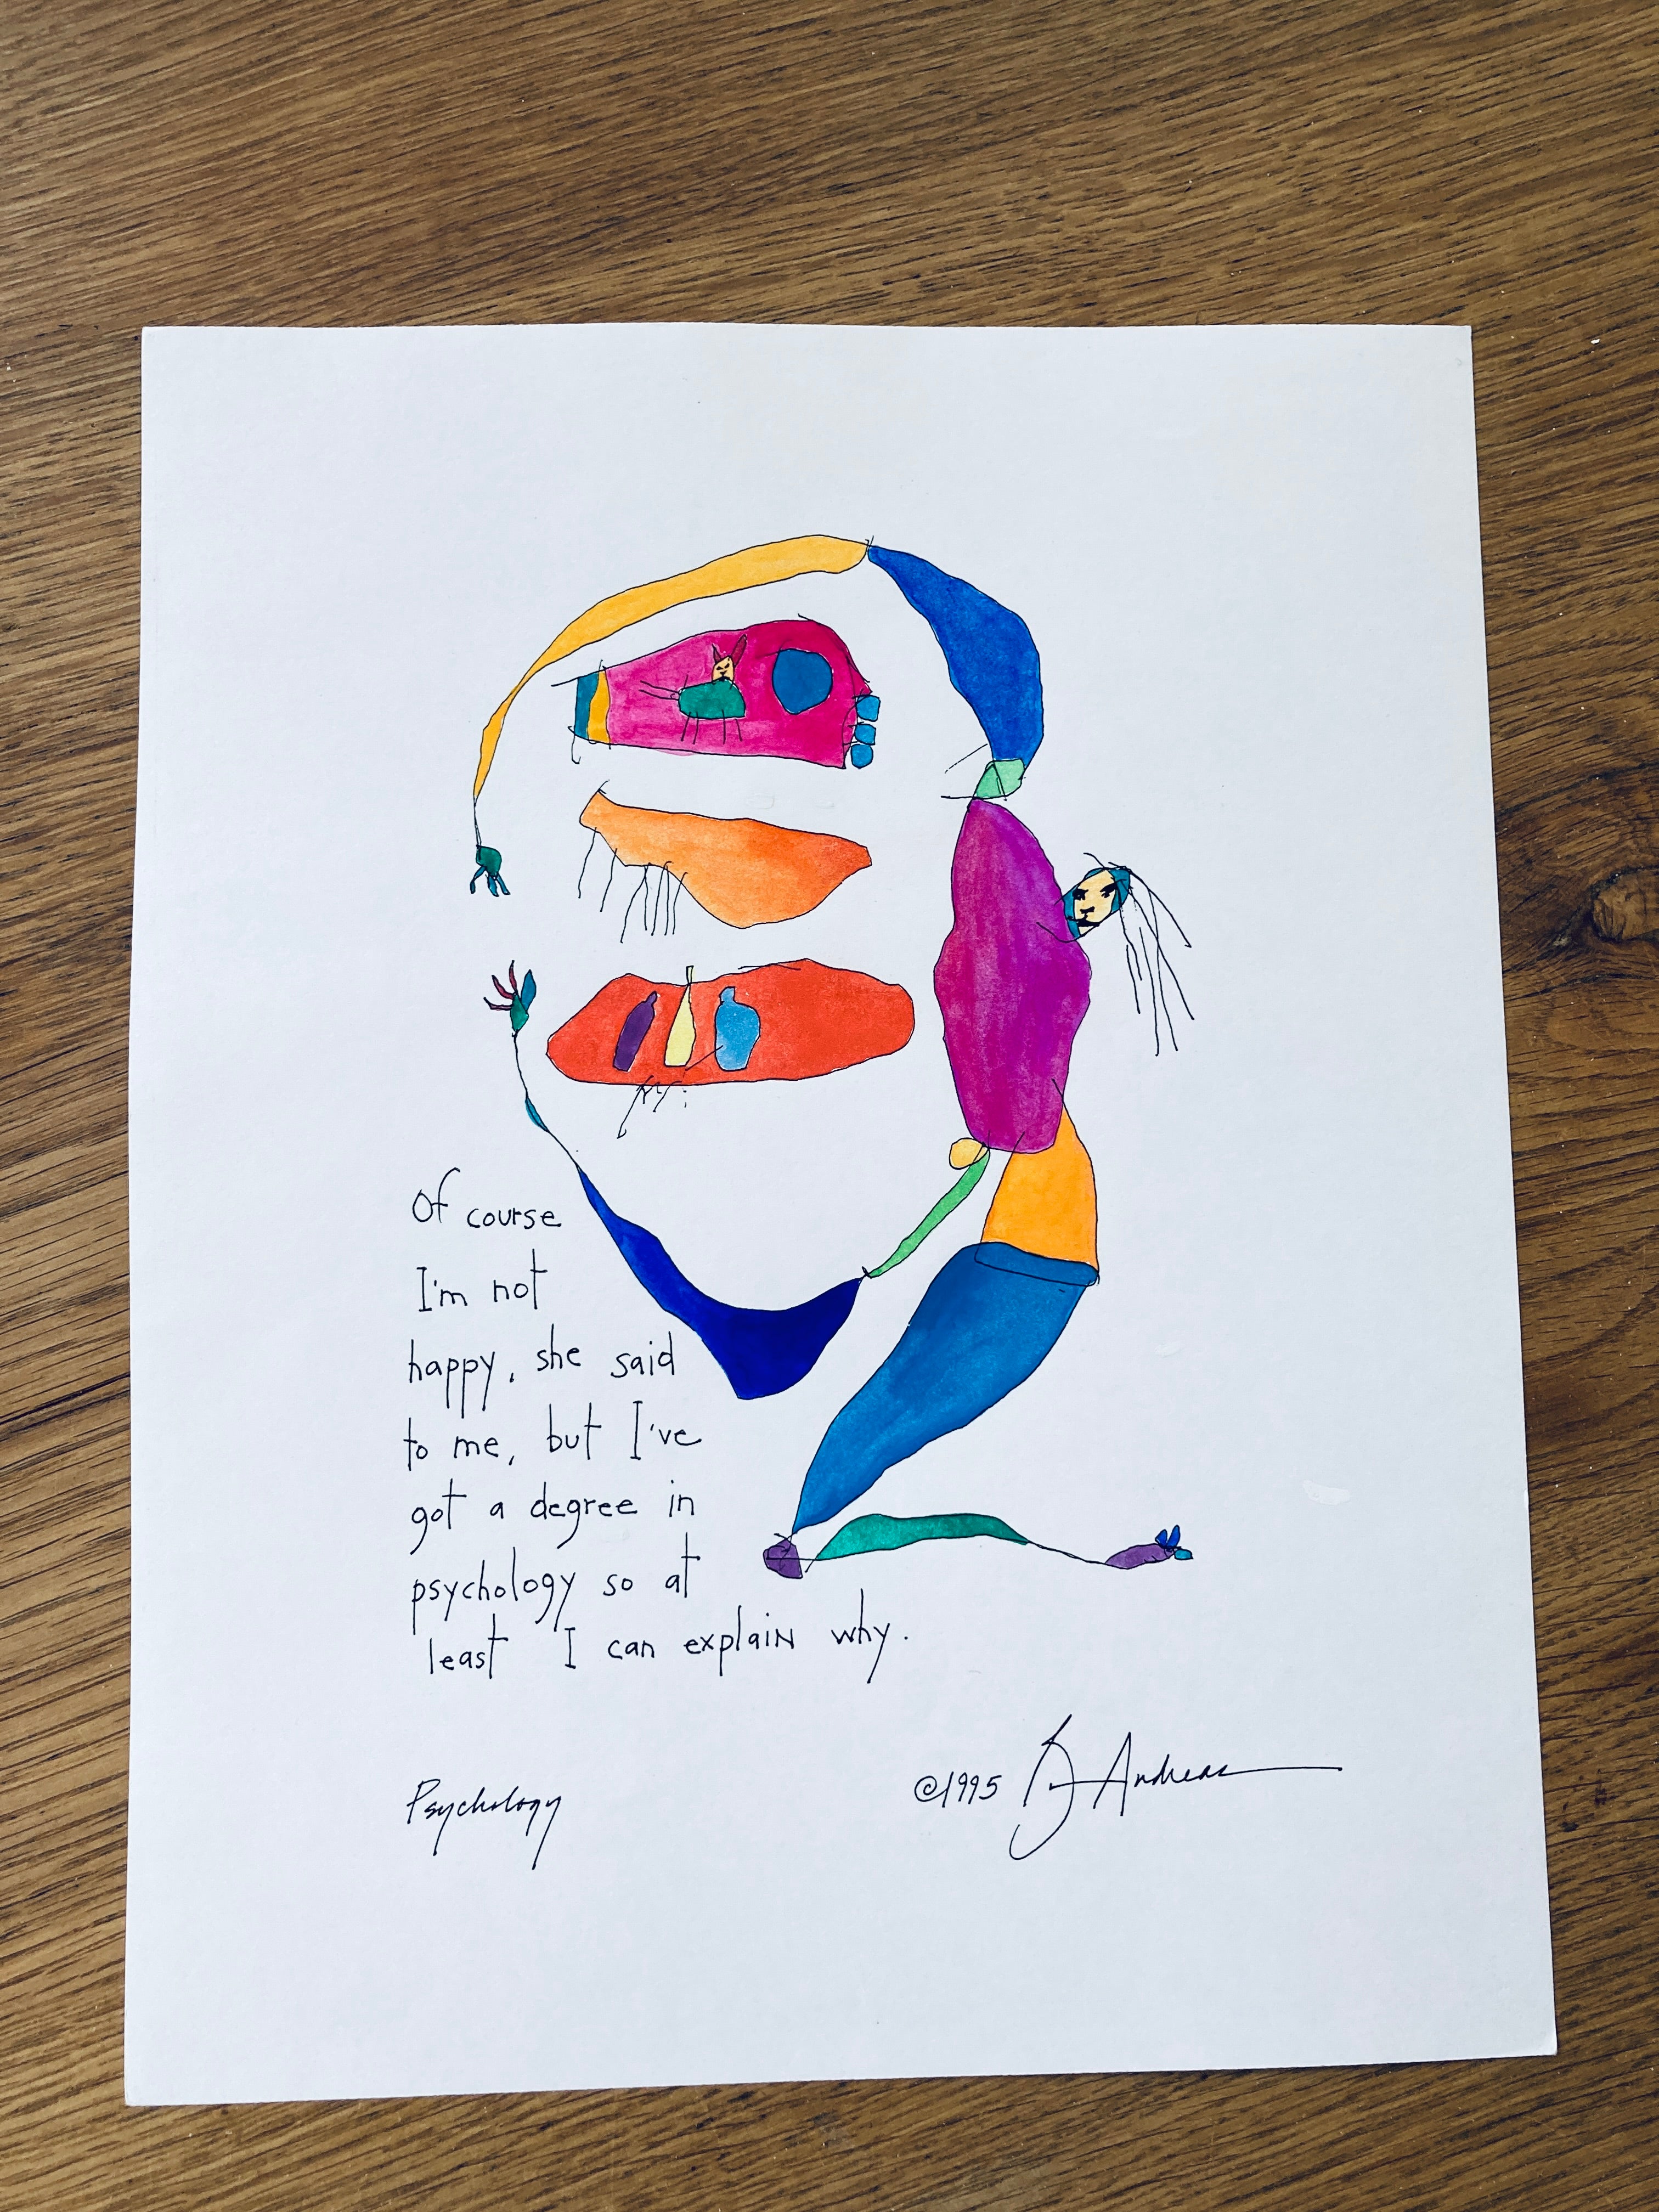 Of course
I'm not
happy, she said
to me, but I've
got a degree in
psychology so at
least I can explain why.
Psychology
©1995 Andreas